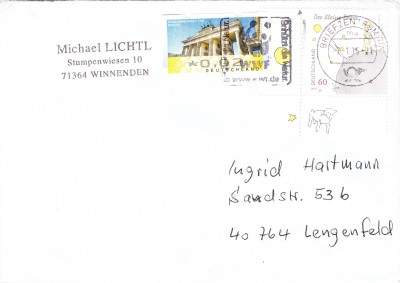 Michael LICHTL
Stumpenwiesen 10
71364 WINNENDEN
*0,02
DEUTSCHLAND
WWF
Der Kleine
BRIEFZENTRUM
DEUTSCHLAND
60
Ingrid Hartmann
Sandstr. 53 b
40 764 Lengenfeld